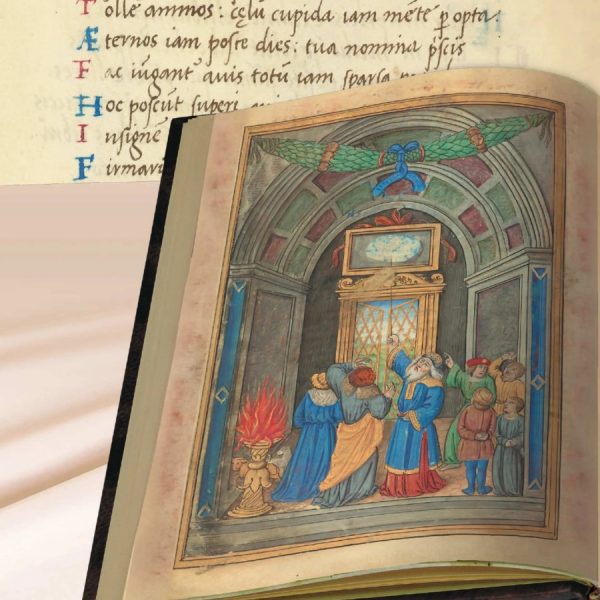 Tolle animos: cęlū cupida iam mēte p opta:
Æternos iam posce dies: tua nomina p̄scis
Fac iūgant auis totū iam sparsa
Hoc poscūt superi
Insigne
Firmari